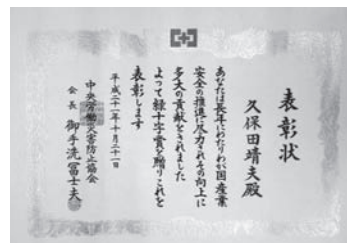 表彰状
久保田靖夫殿
あなたは長年にわたりわが国産業
安全の推進に尽力されその向上に
多大の貢献をされました
よって緑十字賞を贈りこれを
表彰します
平成二十一年十月二十一日
中央労働災害防止協会
会長 御手洗冨士夫